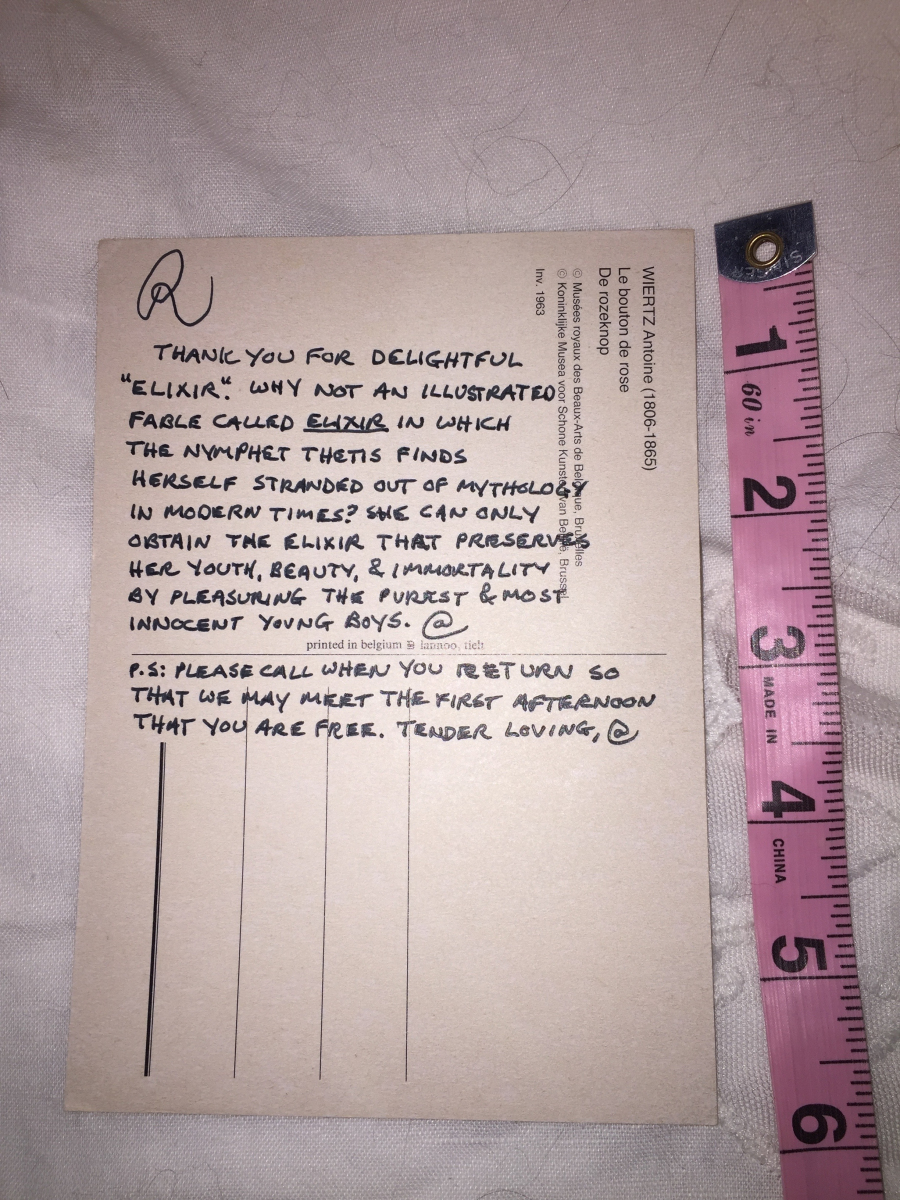 R
THANK YOU FOR DELIGHTFUL
"ELIXIR". WHY NOT AN ILLUSTRATED
FABLE CALLED ELIXIR IN WHICH
THE NYMPHET THETIS FINDS
HERSELF STRANDED OUT OF MYTHOLOGY
IN MODERN TIMES? SHE CAN ONLY
OBTAIN THE ELIXIR THAT PRESERVES
HER YOUTH, BEAUTY, & IMMORTALITY
BY PLEASURING THE PUREST & MOST
INNOCENT YOUNG BOYS. @
printed in belgium lannoo, tielt
P.S: PLEASE CALL WHEN YOU RETURN SO
THAT WE MAY MEET THE FIRST AFTERNOON
THAT YOU ARE FREE. TENDER LOVING, @
WIERTZ Antoine (1806-1865)
Le bouton de rose
De rozeknop
© Musées royaux des Beaux-Arts de Belgique, Bruxelles
© Koninklijke Musea voor Schone Kunsten van België, Brussel
Inv. 1963
SINGER
1
60 in
2
3
MADE IN
4
CHINA
5
6